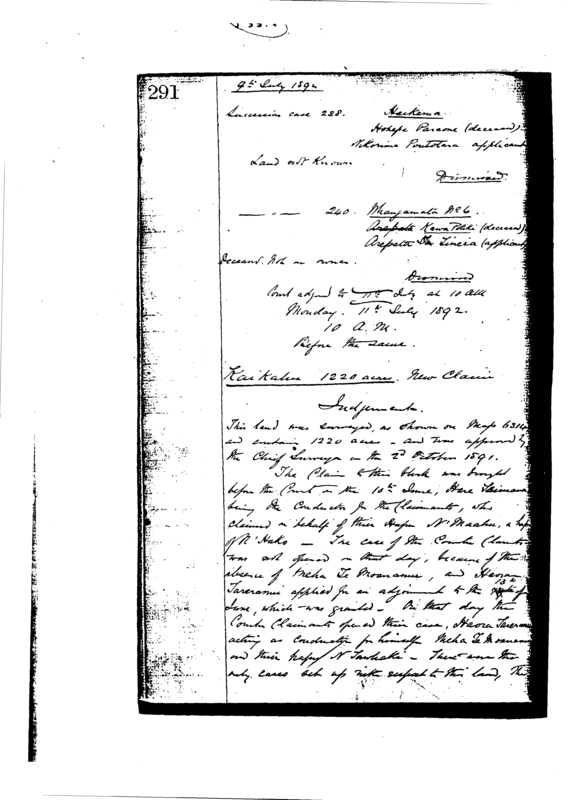 291
9th July 1892
Succession case 228. Haukema
Hohepa Paraone (deceased)
applicant
Land not Known
Dismissed
—"— 240. Whangamata No 6.
Arepata (deceased)
Arepata (applicant
Deceased. Not an owner.
Dismissed
Court adjd to 11th July at 10 AM
Monday. 11th July 1892.
10 A.M.
Before the same.
Kaikahu 1220 acres. New Claim
Judgement.
This land was surveyed, as shown on Map 6314
and contains 1220 acres – and was approved by
the Chief Surveyor on the 2d October 1891.
The Claim to this block was brought
before the Court on the 10th June, Hare
being the Conductor for the Claimants, who
claimed on behalf of their Hapu N' Maahu, a hapu
of N' Hako – The case of the Counter Claimts
was not opened on that day, because of the
absence of Meha Te Moananui, and Haora
Tareranui applied for an adjournment to the 13th of
June, which was granted – On that day the
Counter Claimants opened their case, Haora Tareranui
acting as conductor for himself Meha Te Moananui
and their hapu N' Tawhaki – These were the
only cases set up with respect to this land, The